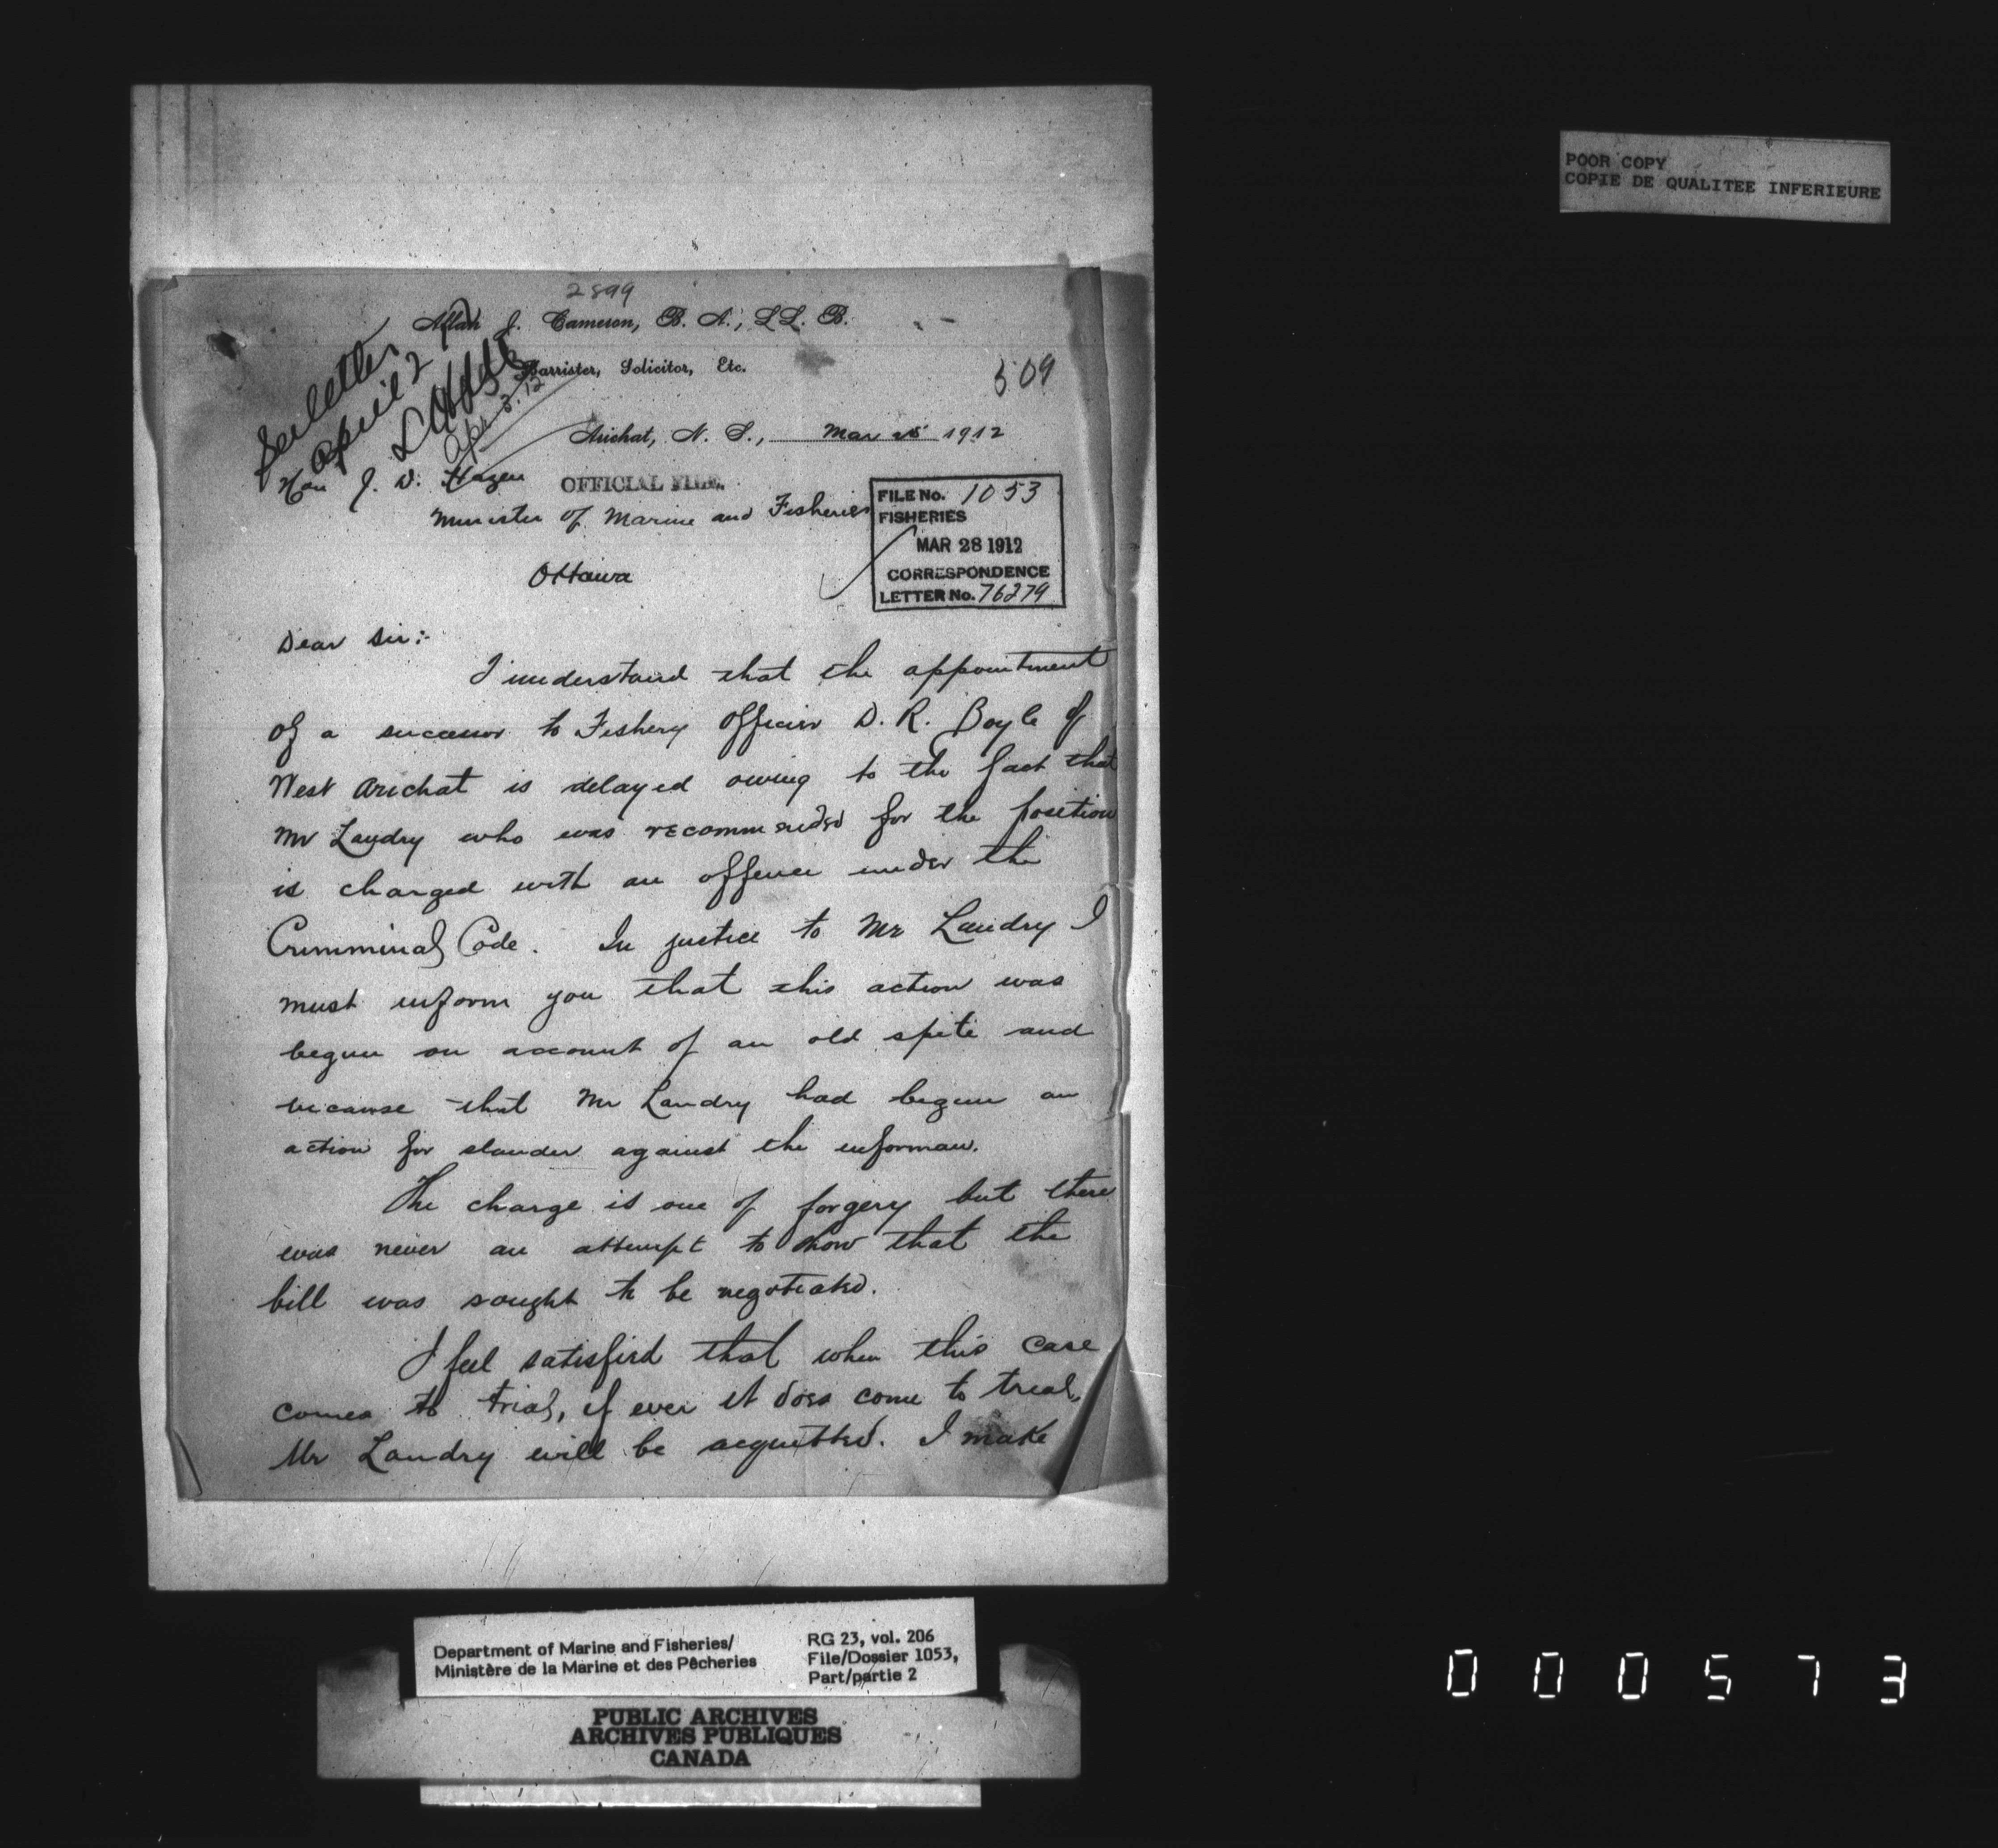 POOR COPY
COPIE DE QUALITEE INFERIEURE
2899
Allan J. Cameron, B. A., LL. B.
Barrister, Solicitor, Etc.
509
See letter
april 2
Apr 3. 12
Arichat, N. S., Mar 25 1912
Hon J. D. Hazen
OFFICIAL FILE.
Minister of Marine and Fisheries
Ottawa
FILE No. 1053
FISHERIES
MAR 28 1912
CORRESPONDENCE
LETTER No. 76279
Dear Sir:-
I understand that the appointment
of a successor to Fishery Officer D. R. Boyle of
West Arichat is delayed owing to the fact that
Mr Landry who was recommended for the position
is charged with an offence under the
Crimminal Code. In justice to Mr Landry I
must inform you that this action was
begun on account of an old spite and
because that Mr Landry had begun an
action for slander against the
The charge is one of forgery but there
was never an attempt to show that the
bill was sought to be negotiated.
I feel satisfied that when this case
comes to trial, if ever it does come to trial,
Mr Landry will be acquitted. I make
Department of Marine and Fisheries/
Ministère de la Marine et des Pêcheries
RG 23, vol. 206
File/Dossier 1053,
Part/partie 2
PUBLIC ARCHIVES
ARCHIVES PUBLIQUES
CANADA
000573